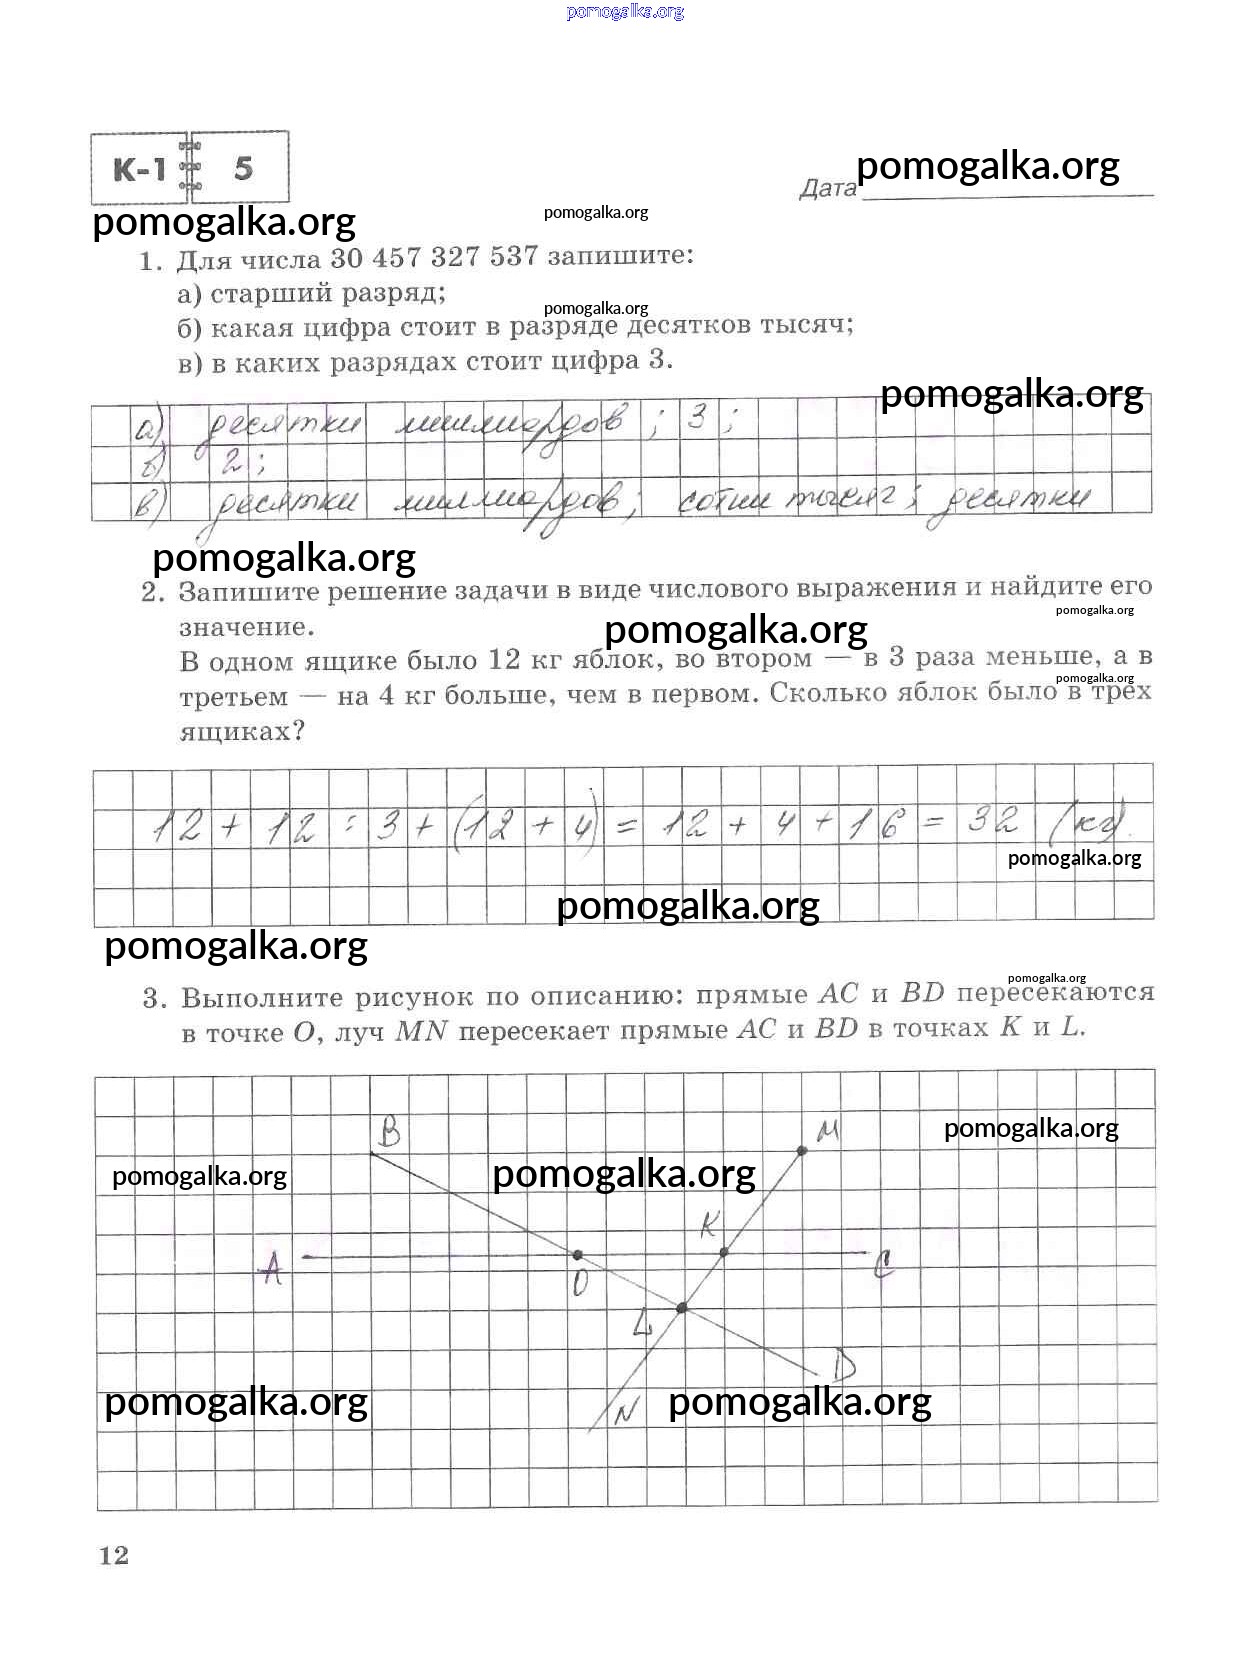 pomogalka.org
К-1 5
Дата pomogalka.org
pomogalka.org
pomogalka.org
1. Для числа 30 457 327 537 запишите:
а) старший разряд;
pomogalka.org
б) какая цифра стоит в разряде десятков тысяч;
в) в каких разрядах стоит цифра 3.
pomogalka.org
а) десятки миллиардов ; 3 ;
б) 2 ;
в) десятки миллиардов; сотни тысяч ; десятки
pomogalka.org
2. Запишите решение задачи в виде числового выражения и найдите его
pomogalka.org
значение.
pomogalka.org
В одном ящике было 12 кг яблок, во втором — в 3 раза меньше, а в
pomogalka.org
третьем — на 4 кг больше, чем в первом. Сколько яблок было в трех
ящиках?
12 + 12 : 3 + (12 + 4) = 12 + 4 + 16 = 32 (кг).
pomogalka.org
pomogalka.org
pomogalka.org
pomogalka.org
3. Выполните рисунок по описанию: прямые AC и BD пересекаются
в точке O, луч MN пересекает прямые AC и BD в точках K и L.
B
M
pomogalka.org
pomogalka.org
pomogalka.org
K
A
O
C
L
D
pomogalka.org
N
pomogalka.org
12